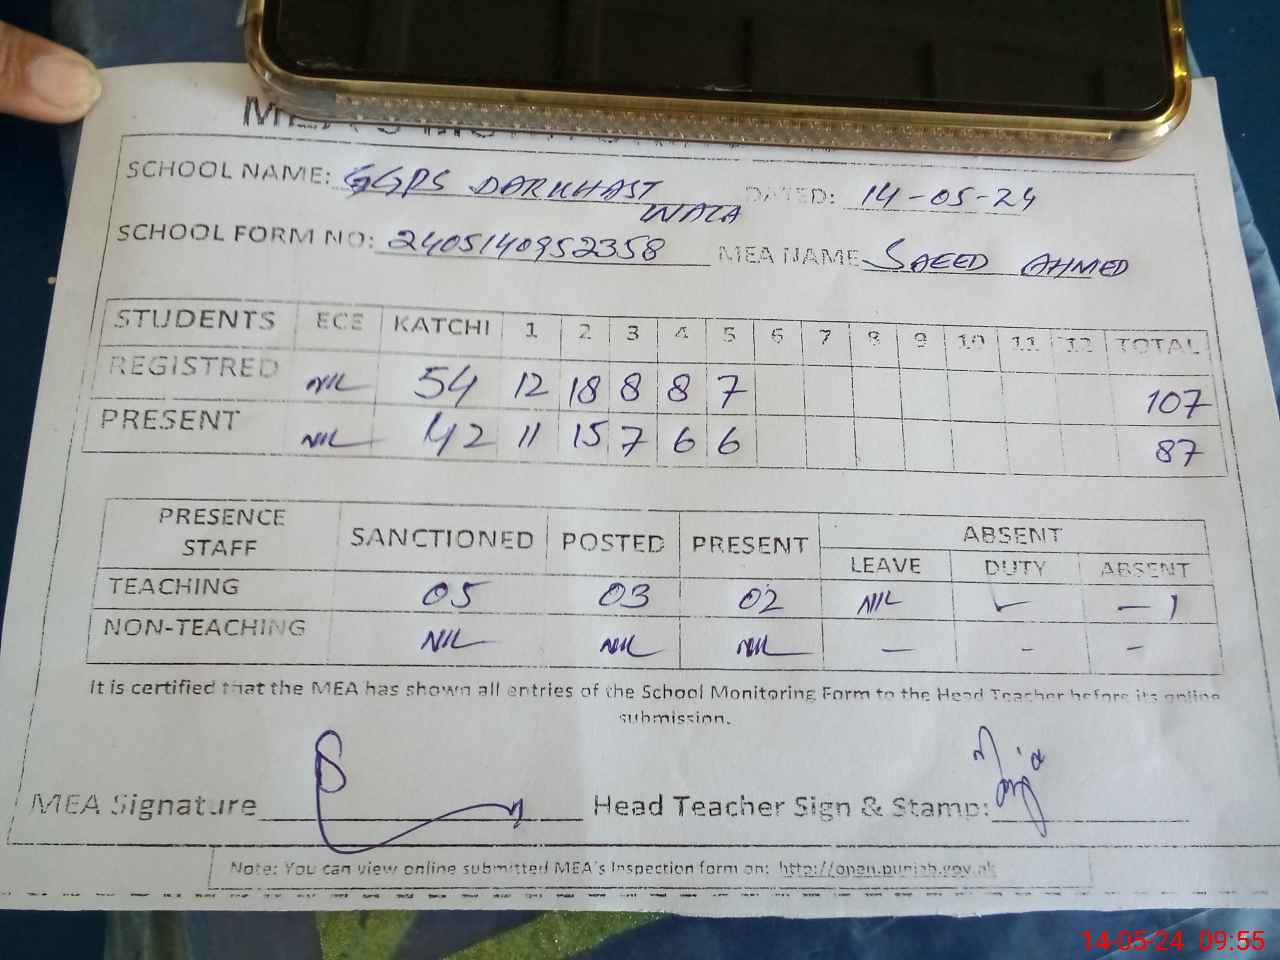 SCHOOL NAME: GGPS DARKHAST WALA DATED: 14-05-24
SCHOOL FORM NO: 2405140952358 MEA NAME SAEED AHMED
STUDENTS ECE KATCHI 1 2 3 4 5 6 7 8 9 10 11 12 TOTAL
REGISTRED NIL 54 12 18 8 8 7 107
PRESENT NIL 42 11 15 7 6 6 87
PRESENCE STAFF SANCTIONED POSTED PRESENT ABSENT
LEAVE DUTY ABSENT
TEACHING 05 03 02 NIL ✓ — 1
NON-TEACHING NIL NIL NIL — - -
It is certified that the MEA has shown all entries of the School Monitoring Form to the Head Teacher before its online
submission.
MEA Signature Head Teacher Sign & Stamp:
Note: You can view online submitted MEA's Inspection form on: http://open.punjab.gov.pk
14-05-24 09:55